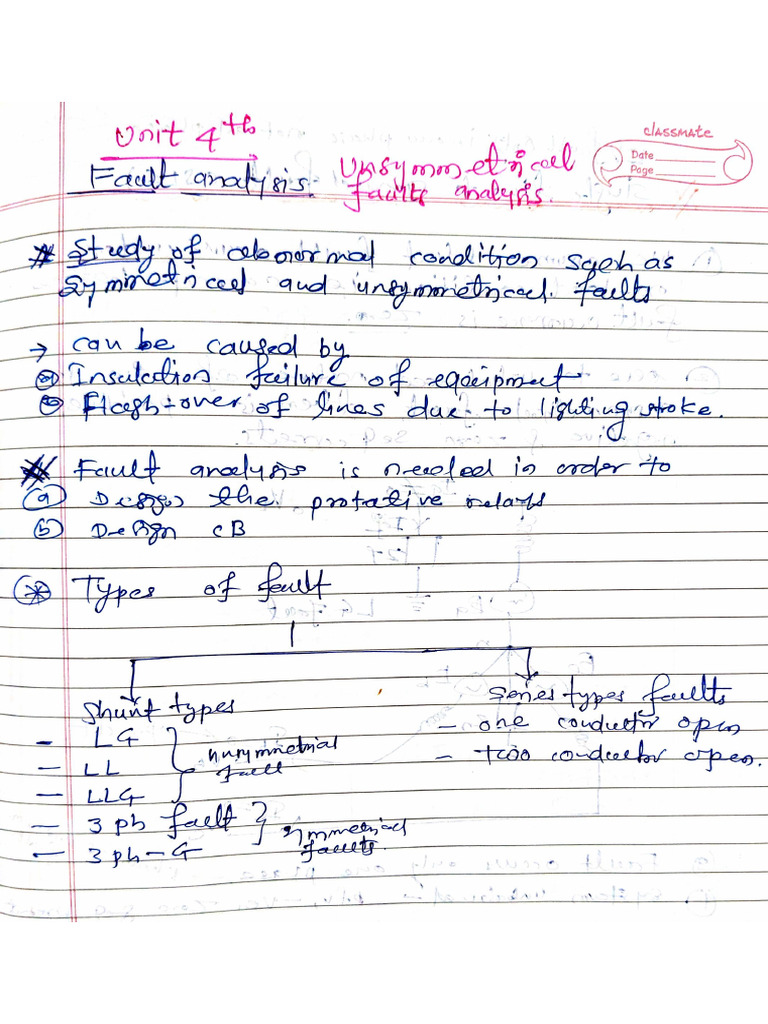 Unit 4th
classmate
Date
Page
Fault analysis. Unsymmetrical
faults analysis.
* Study of abnormal condition such as
symmetrical and unsymmetrical. faults
→ can be caused by
(a) Insulation failure of equipment
(b) Flash-over of lines due to lighting stroke.
* Fault analysis is needed in order to
(a) Design the protative relays
(b) Design CB
* Types of fault
Shunt types
Series types faults
- LG
- one conductor open
unsymmetrial
- LL
- two conductor open.
fault
- LLG
- 3 ph fault
symmetrical
- 3 ph - G
faults.